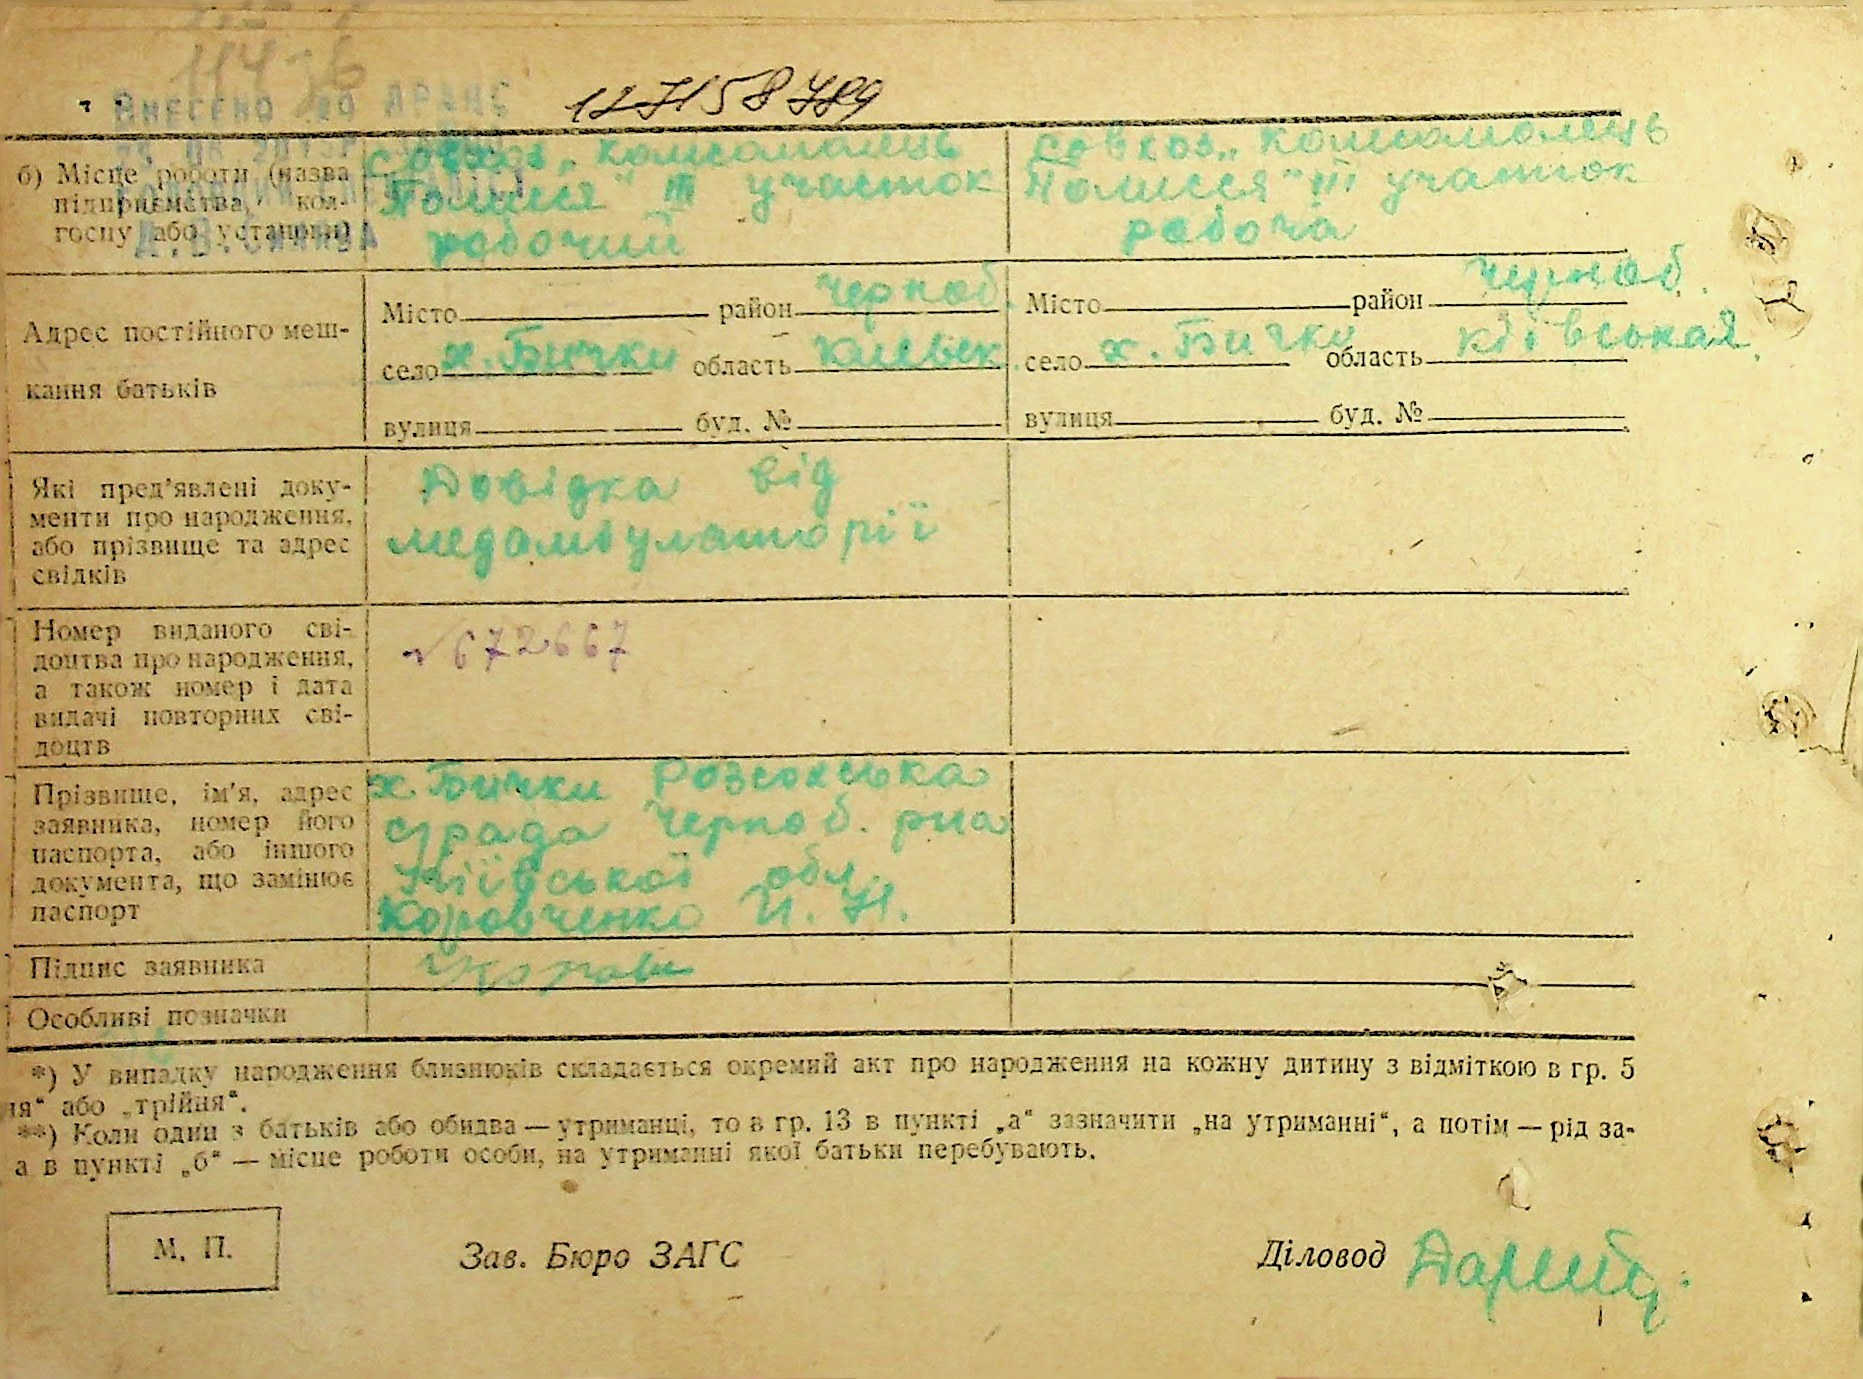 11436
Внесено до ДРАЦС
127158789
б) Місце роботи (назва підприємства, колгоспу або установи)
совхоз „Комсомолець
Полисся" III участок
робочий
совхоз „Комсомолець
Полисся" III участок
робоча
Адрес постійного меш-
кання батьків
Місто район Черноб.
село х. Бички область Киевск.
вулиця буд. №
Місто район Черноб.
село х. Бички область Київськая
вулиця буд. №
Які пред'явлені доку-
менти про народження,
або прізвище та адрес
свідків
Довідка від
медамбулаторії
Номер виданого сві-
доцтва про народження,
а також номер і дата
видачі повторних сві-
доцтв
№ 672667
Прізвище, ім'я, адрес
заявника, номер його
паспорта, або іншого
документа, що замінює
паспорт
х. Бички Розсохська
с/рада Черноб. р-на
Київської обл.
Коровченко И. Н.
Підпис заявника
Особливі позначки
*) У випадку народження близнюків складається окремий акт про народження на кожну дитину з відміткою в гр. 5
ія" або „трійня".
**) Коли один з батьків або обидва — утриманці, то в гр. 13 в пункті „а" зазначити „на утриманні", а потім — рід за-
а в пункті „б" — місце роботи особи, на утриманні якої батьки перебувають.
М. П.
Зав. Бюро ЗАГС
Діловод